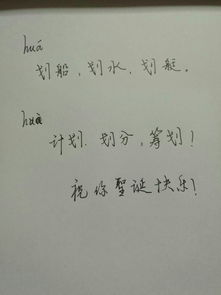 huá
划船,划水,划艇。
huà
计划.划分,筹划!
祝你聖诞快乐!